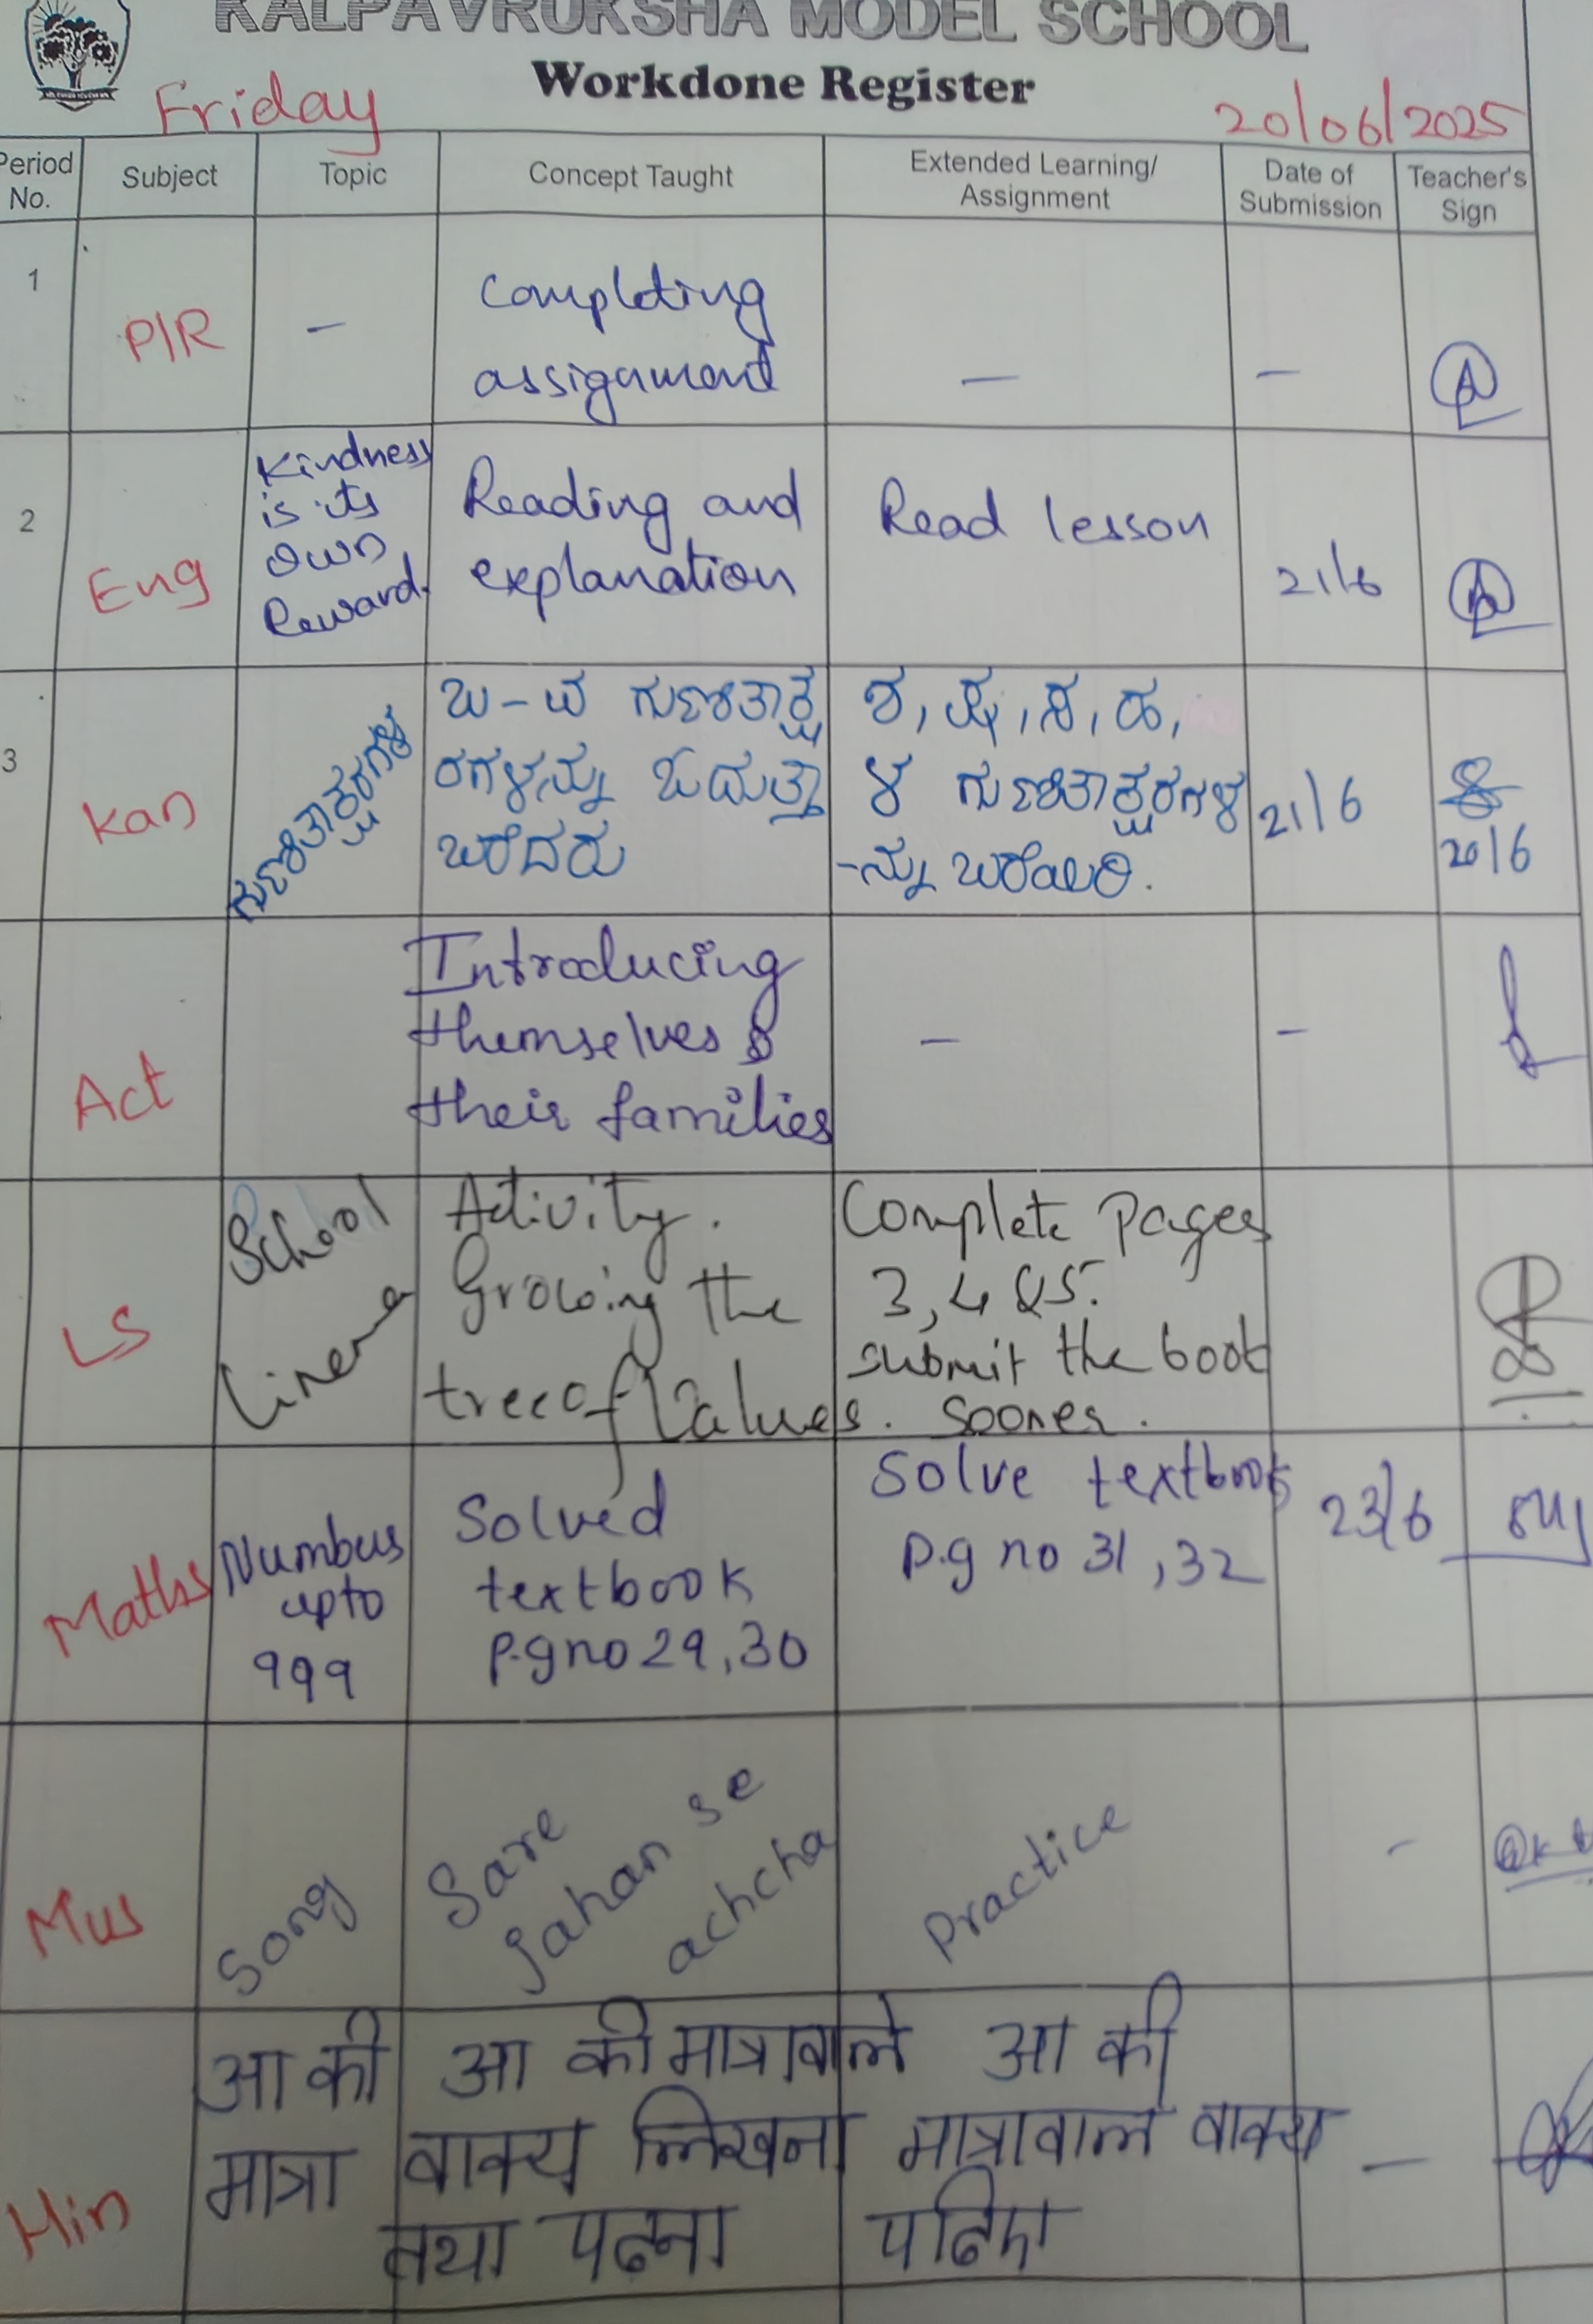 KALPAVRUKSHA MODEL SCHOOL
Workdone Register
Friday
20/06/2025
Period No.
Subject
Topic
Concept Taught
Extended Learning/
Assignment
Date of
Submission
Teacher's
Sign
1
P/R
-
Completing
assignment
-
-
2
Eng
Kindness
is its
own
Reward.
Reading and
explanation
Read lesson
21/6
3
Kan
ಗುಣಿತಾಕ್ಷರಗಳ
ಬ-ವ ಗುಣಿತಾಕ್ಷ
ರಗಳನ್ನು ಓದುತ್ತಾ
ಬರೆದರು
ಶ, ಷ, ಸ, ಹ,
ಳ ಗುಣಿತಾಕ್ಷರಗಳ
-ನ್ನು ಬರೆಯಿರಿ.
21/6
20/6
Act
Introducing
themselves &
their families
-
-
LS
School
Cinema
Activity.
Growing the
tree of Values.
Complete Pages
3, 4 & 5.
submit the book
sooner.
Maths
Numbers
upto
999
Solved
textbook
p.g no 29, 30
Solve textbook
p.g no 31, 32
23/6
Mus
Song
Sare
Jahan se
achcha
Practice
-
Hin
आ की
मात्रा
आ की मात्रावाले
वाक्य लिखना
तथा पढना
आ की
मात्रावाले वाक्य
पढिए
-